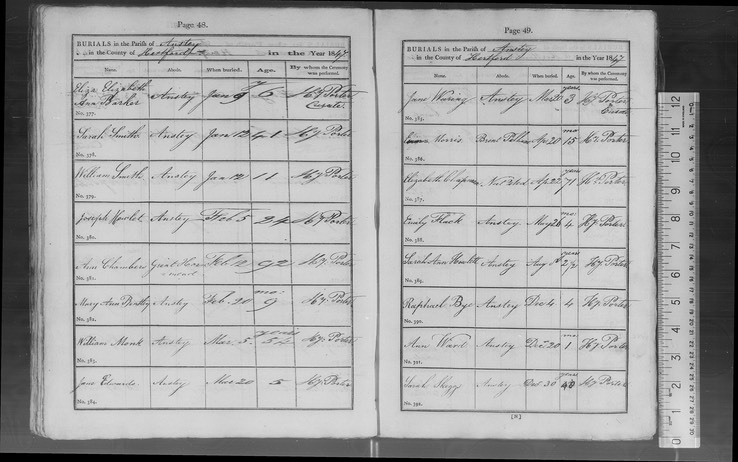 Page 48.
BURIALS in the Parish of Anstey
in the County of Hertford in the Year 1847
Name. Abode. When buried. Age. By whom the Ceremony was performed.
Eliza Elizabeth
Ann Barker Anstey Jan 9 6 Hy Porter
Curate.
No. 377.
Sarah Smith Anstey Jan 12 41 Hy Porter
No. 378.
William Smith Anstey Jan 12 11 Hy Porter
No. 379.
Joseph Howlet Anstey Feb 5 24 Hy Porter
No. 380.
Ann Chambers Great Hor Feb 92 Hy Porter
mead
No. 381.
Mary Ann Anstey Feb. 20 mo 9 Hy Porter
No. 382.
years
William Monk Anstey Mar. 5. 54 Hy Porter
No. 383.
Jane Edwards Anstey Mar 20 5 Hy Porter
No. 384.
Page 49.
BURIALS in the Parish of Anstey
in the County of Hertford in the Year 1847
Name. Abode. When buried. Age. By whom the Ceremony was performed.
years
Jane Waring Anstey Mar 20 3 Hy Porter
No. 385.
mo
Morris Brent Pelham Ap 20 15 Hy Porter
No. 386.
years
Elizabeth Chapman Ap 22 71 Hy Porter
No. 387.
mo.
Emily Flack Anstey May 26 4. Hy Porter
No. 388.
years
Sarah Ann Howlett Anstey Aug 2 Hy Porter
No. 389.
Raphael Bye Anstey Dec 4 4 Hy Porter
No. 390.
mo.
Ann Ward Anstey Dec 20 1. Hy Porter
No. 391.
years
Sarah Anstey Dec 30 40 Hy Porter
No. 392.
0 1 2 3 4 5 6 7 8 9 10 11 12